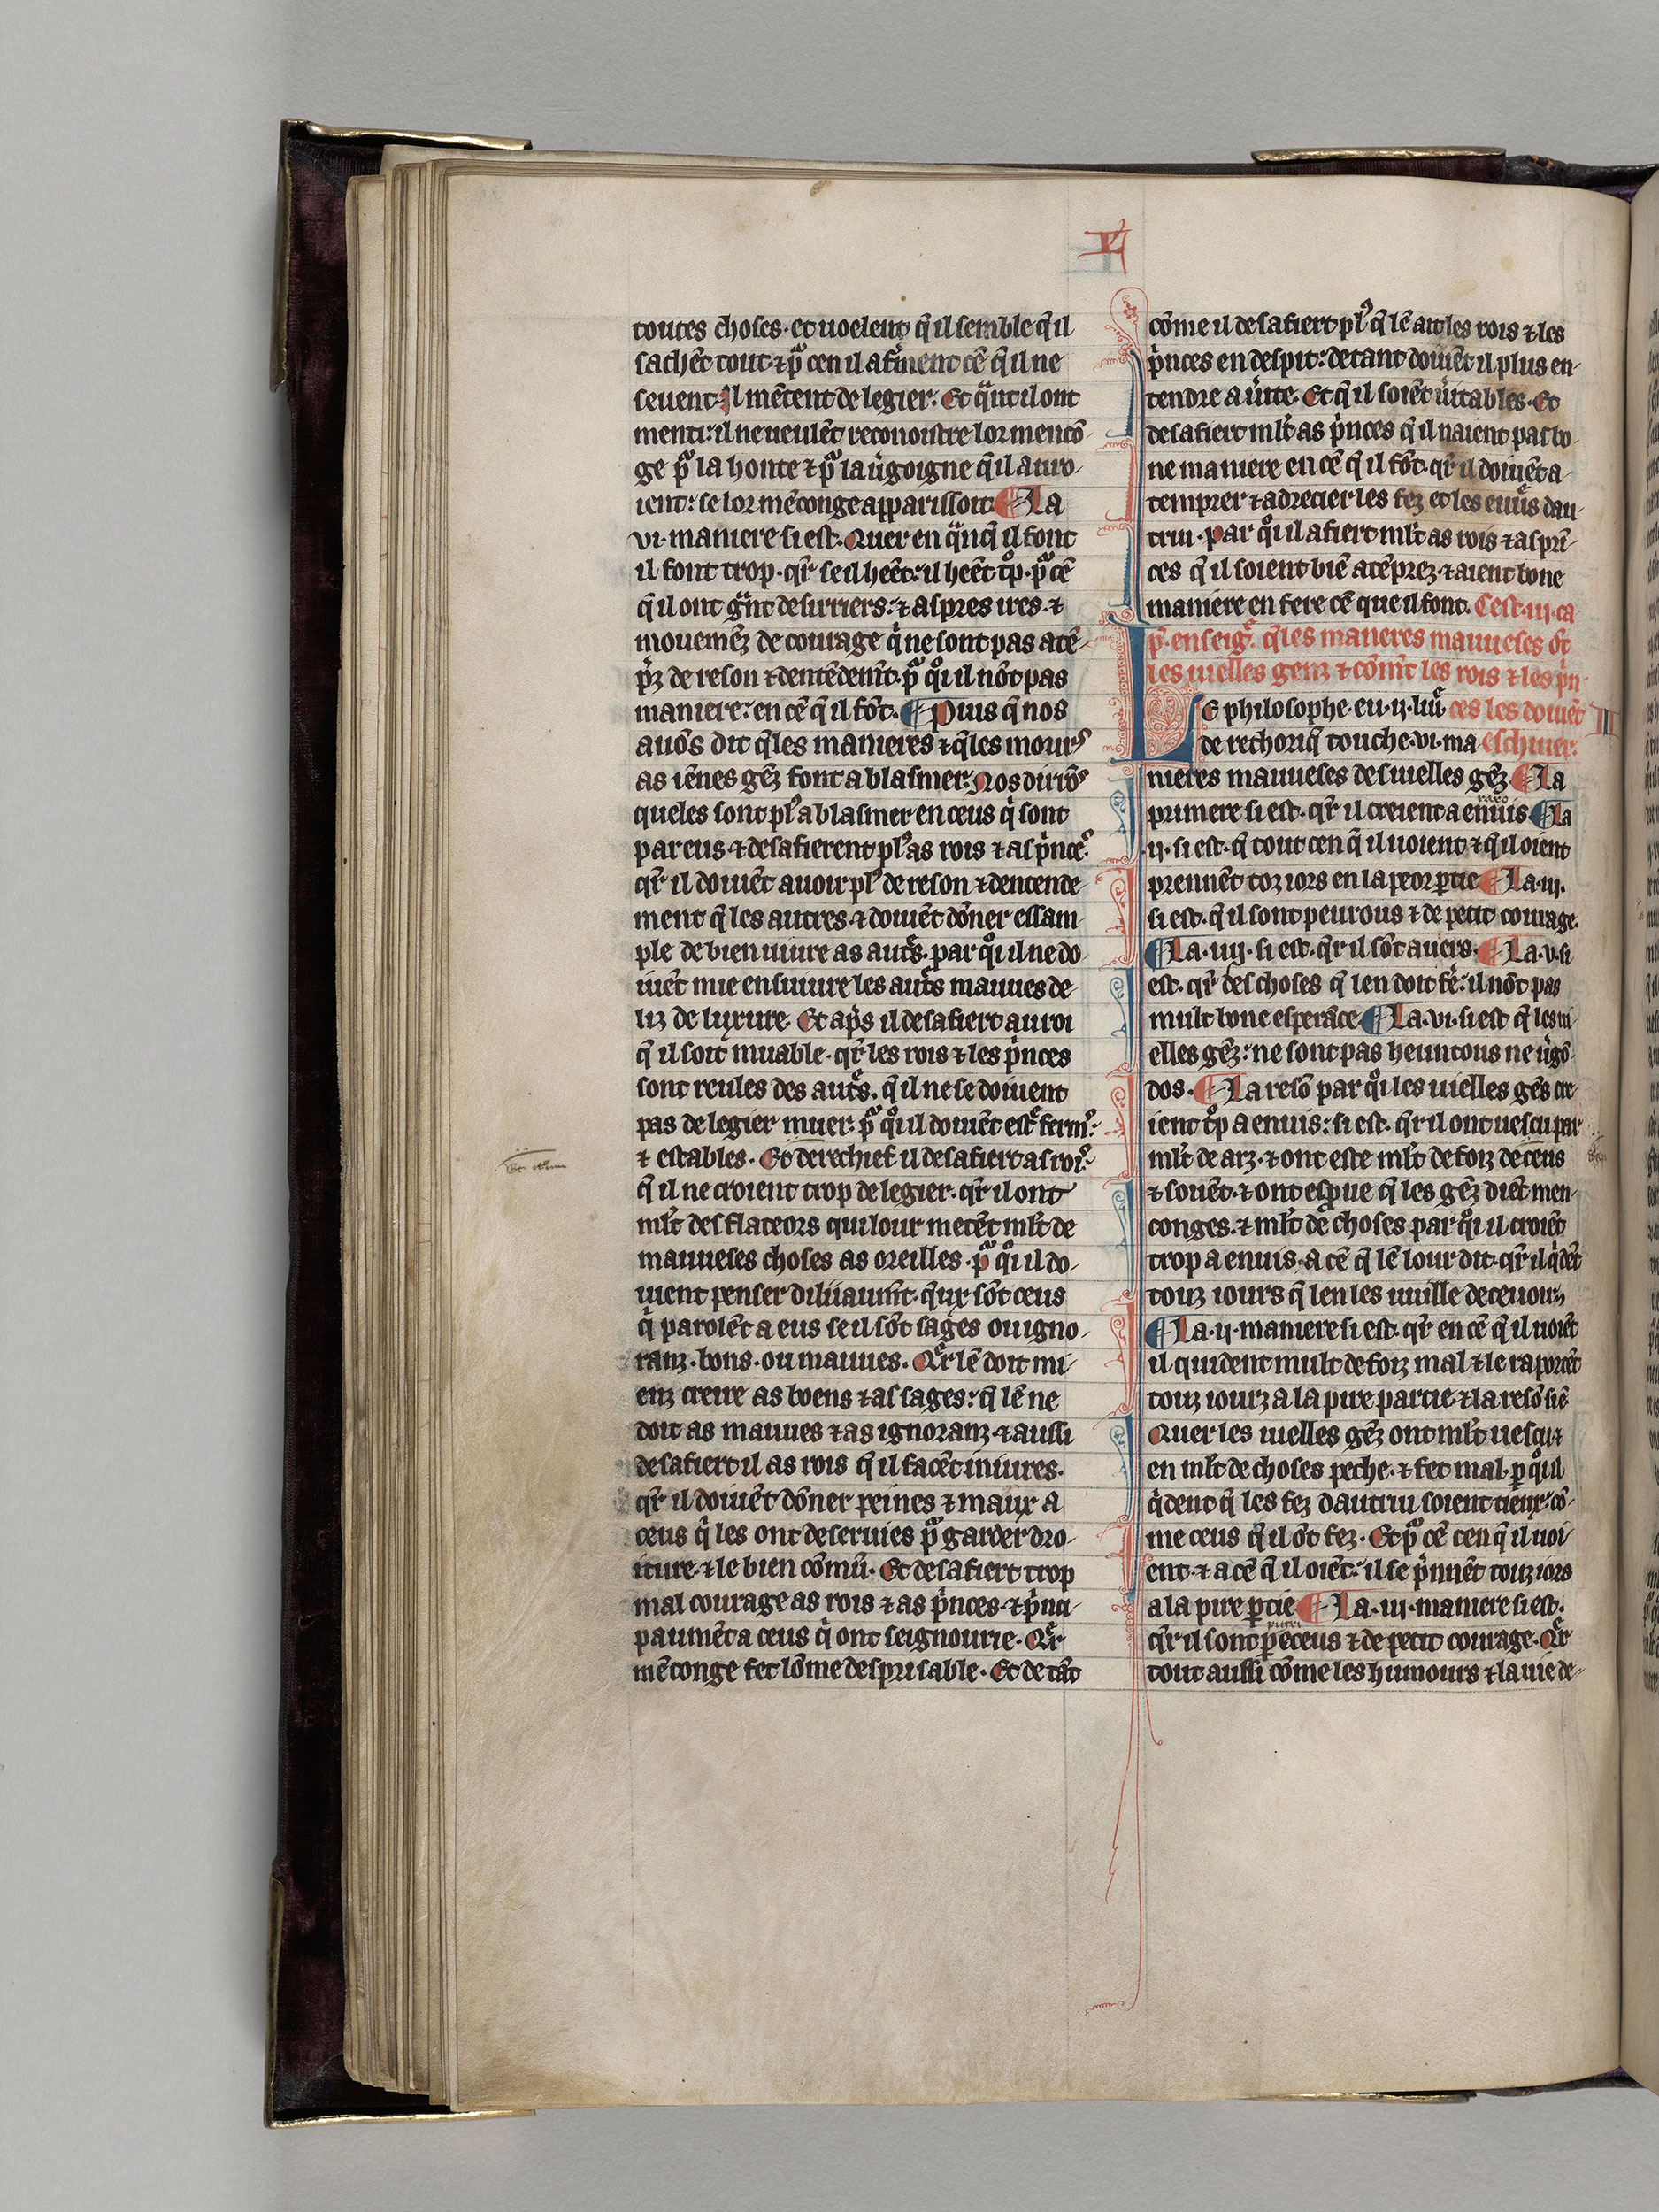 toutes choses· et uoelent q̄ il semble q̄ il
sachēt tout· ⁊ pͣ cen il afͥment cē q̄ il ne
seuent· Il mētent de legier. Et qͣnt il ont
menti: il ne ueulēt reconoistre lor mencō
ge pͣ la honte ⁊ pͣ la uͥgoigne q̄ il auro-
ient: se lor mēconge apparissoit. ¶ La
vi· maniere si est. Quer en qͣnq̄ il font
il font trop· qr̄ se il heēt: il heēt tͦp· pͣ cē
q̄ il ont gͣnt desirriers: ⁊ aspres ires· ⁊
mouemēz de courage qͥ ne sont pas atē-
pͥz de reson ⁊ dentēdemt̄· pͣ qͦi il nōt pas
maniere: en cē q̄ il fōt. ¶ Puis q̄ nos
auōs dit q̄les manieres ⁊ q̄les mours
as iēnes gēz font a blasmer: Nos dirōs
queles sont plꝰ a blasmer en ceus qͥ sont
par eus· ⁊ desafierent plꝰ as rois ⁊ as pͥnceˢ.
qr̄ il doiuēt auoir plꝰ de reson ⁊ dentende
ment q̄ les autres· ⁊ doiuēt dōner essam-
ple de bien uiure as autˢ̄. par qͦi il ne do-
iuēt mie ensuiure les autˢ̄ mauues de-
liz de luxure. Et apˢ̄ il desafiert au roi
q̄ il soit muable· qr̄ les rois ⁊ les pͥnces
sont reules des autˢ̄. q̄ il ne se doiuent
pas de legier muer: pͣ qͦi il doiuēt estͤ fermˢ:
⁊ estables· Et derechief il desafiert as roiˢ:
q̄ il ne croient trop de legier· qr̄ il ont
ml̄t des flateors qui lour metēt ml̄t de
mauueses choses as oreilles· pͣ qͦi il do-
iuent penser diliiaumt̄· q̄ux sōt ceus
qͥ parolēt a eus se il sōt sages ou igno-
ranz· bons· ou mauues. Qr̄ lē doit mi-
euz creire as boens ⁊ as sages: q̄ lē ne
doit as mauues ⁊ as ignoranz· ⁊ aussi
desafiert il as rois q̄ il facēt iniures·
qr̄ il doiuēt dōner peines ⁊ maux a
ceus qͥ les ont deseruies pͣ garder dro-
iture· ⁊ le bien cōmū· Et desafiert trop
mal courage as rois ⁊ as pͥnces· ⁊ pͥnci-
paumēt a ceus qͥ ont seignourie· Qr̄
mēconge fet lōme desprisable· Et de tāt
V
cōme il desafiert plꝰ q̄ lē ait les rois ⁊ les
pͥnces en despit: de tant doiuēt il plus en-
tendre a uͥite· Et q̄ il soiēt uͥitables· Et
desafiert ml̄t as pͥnces q̄ il naient pas bo-
ne maniere en cē q̄ il fōt· qr̄ il doiuēt a-
temprer ⁊ adrecier les fez et les euuͤs dau-
trui· Par qͦi il afiert ml̄t as rois ⁊ as prī-
ces q̄ il soient biē atēprez· ⁊ aient bone
maniere en fere cē que il font. Cest· iii· ca
p̄· enseigͤ· q̄les maneres mauueses ōt
les uielles genz ⁊ cōmt̄ les rois ⁊ les prī
LE philosophe· eu· ii· liuͤ ces les doiuēt
de rethoriq̄ touche· vi· ma- eschiuer:
III
nieres mauueses des uielles gēz ¶ La
primere si est· qr̄ il creient a enuis· ¶ La
raro
ii· si est· q̄ tout cen q̄ il uoient ⁊ q̄ il oient
prennēt toz iors en la peor ꝑtie ¶ La· iii·
si est· q̄ il sont peurous ⁊ de petit courage·
¶ La· iiij· si est· qr̄ il sōt auers· ¶ La· v· si
est· qr̄ des choses q̄ len doit fē: il nōt pas
mult bone esperāce ¶ La· vi· si est q̄ les ui-
elles gēz: ne sont pas heuntous ne uͥgō-
dos· ¶ La resō par qͦi les uielles gēs cre-
ient tͦp a enuis: si est· qr̄ il ont uescu par
ml̄t de anz· ⁊ ont este ml̄t de foiz deceus
⁊ souēt· ⁊ ont espͥue q̄ les gēz diēt men-
conges· ⁊ ml̄t de choses par qͦi il croiēt
trop a enuis· a cē q̄ lē lour dit· qr̄ il qͥdēt
touz iours q̄ len les uuille deceuoir·
¶ La· ii· maniere si est· qr̄ en cē q̄ il uoiēt
il quident mult de foiz mal ⁊ le raportēt
touz iourz a la pire partie· ⁊ la resō si ē·
Quer les uielles gēz ont ml̄t uescu· ⁊
en ml̄t de choses peche· ⁊ fet mal· p qͦi il
qͥdent q̄ les fez dautrui soient tieux: cō-
me ceus q̄ il ōt fez· Et pͣ cē cen q̄ il uoi-
ent· ⁊ a cē q̄ il oiēt: il se pͥnnēt touz iors
a la pire ꝑtie ¶ La· iii· maniere si est·
qr̄ il sont ꝑeceus ⁊ de petit courage· Qr̄
tout aussi cōme les humours ⁊ la uie de-